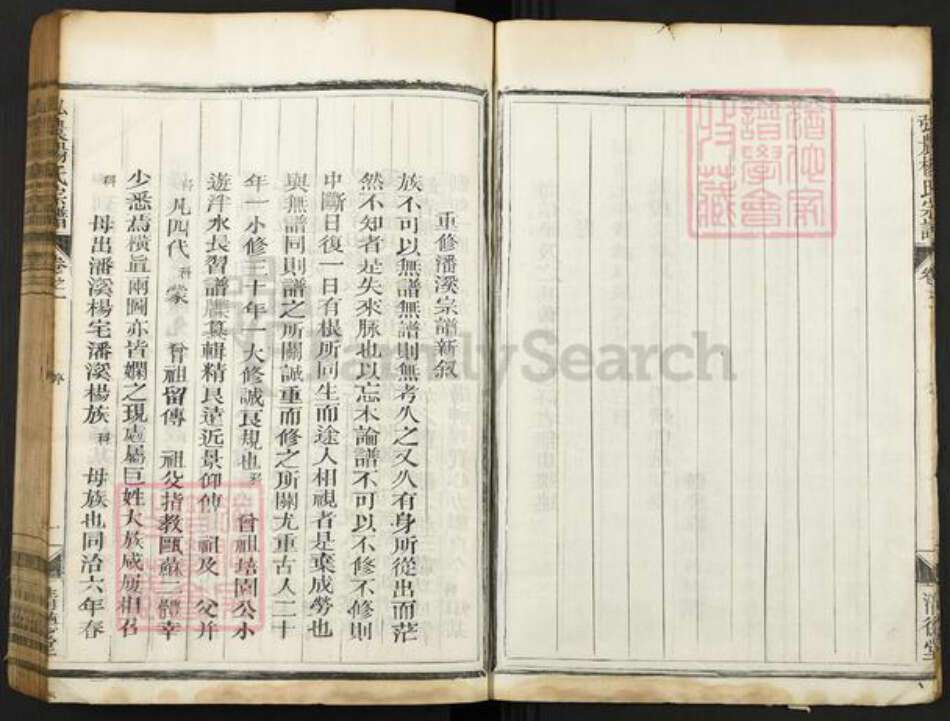 弘農楊氏宗譜
卷之一
清德堂
譜學會
收藏
重修潘溪宗譜新叙
族不可以無譜無譜則無考久之又久有身所從出而茫
然不知者是失來脉也以忘本論譜不可以不修不修則
中斷日復一日有根所同生而途人相視者是棄成勞也
與無譜同則譜之所關誠重而修之所關尤重古人二十
年一小修三十年一大修誠良規也 科 曾祖培園公小
遊泮水長習譜牒纂輯精良遠近景仰傳 祖及 父并
科凡四代 科 蒙 曾祖留傳 祖父指教歐蘇二體幸
少悉焉橫直兩圖亦皆嫻之現處屬巨姓大族咸屢相召
科 母出潘溪楊宅潘溪楊族 科 母族也同治六年春
弘農楊氏宗譜
卷之一
序
一
清德堂
FamilySearch